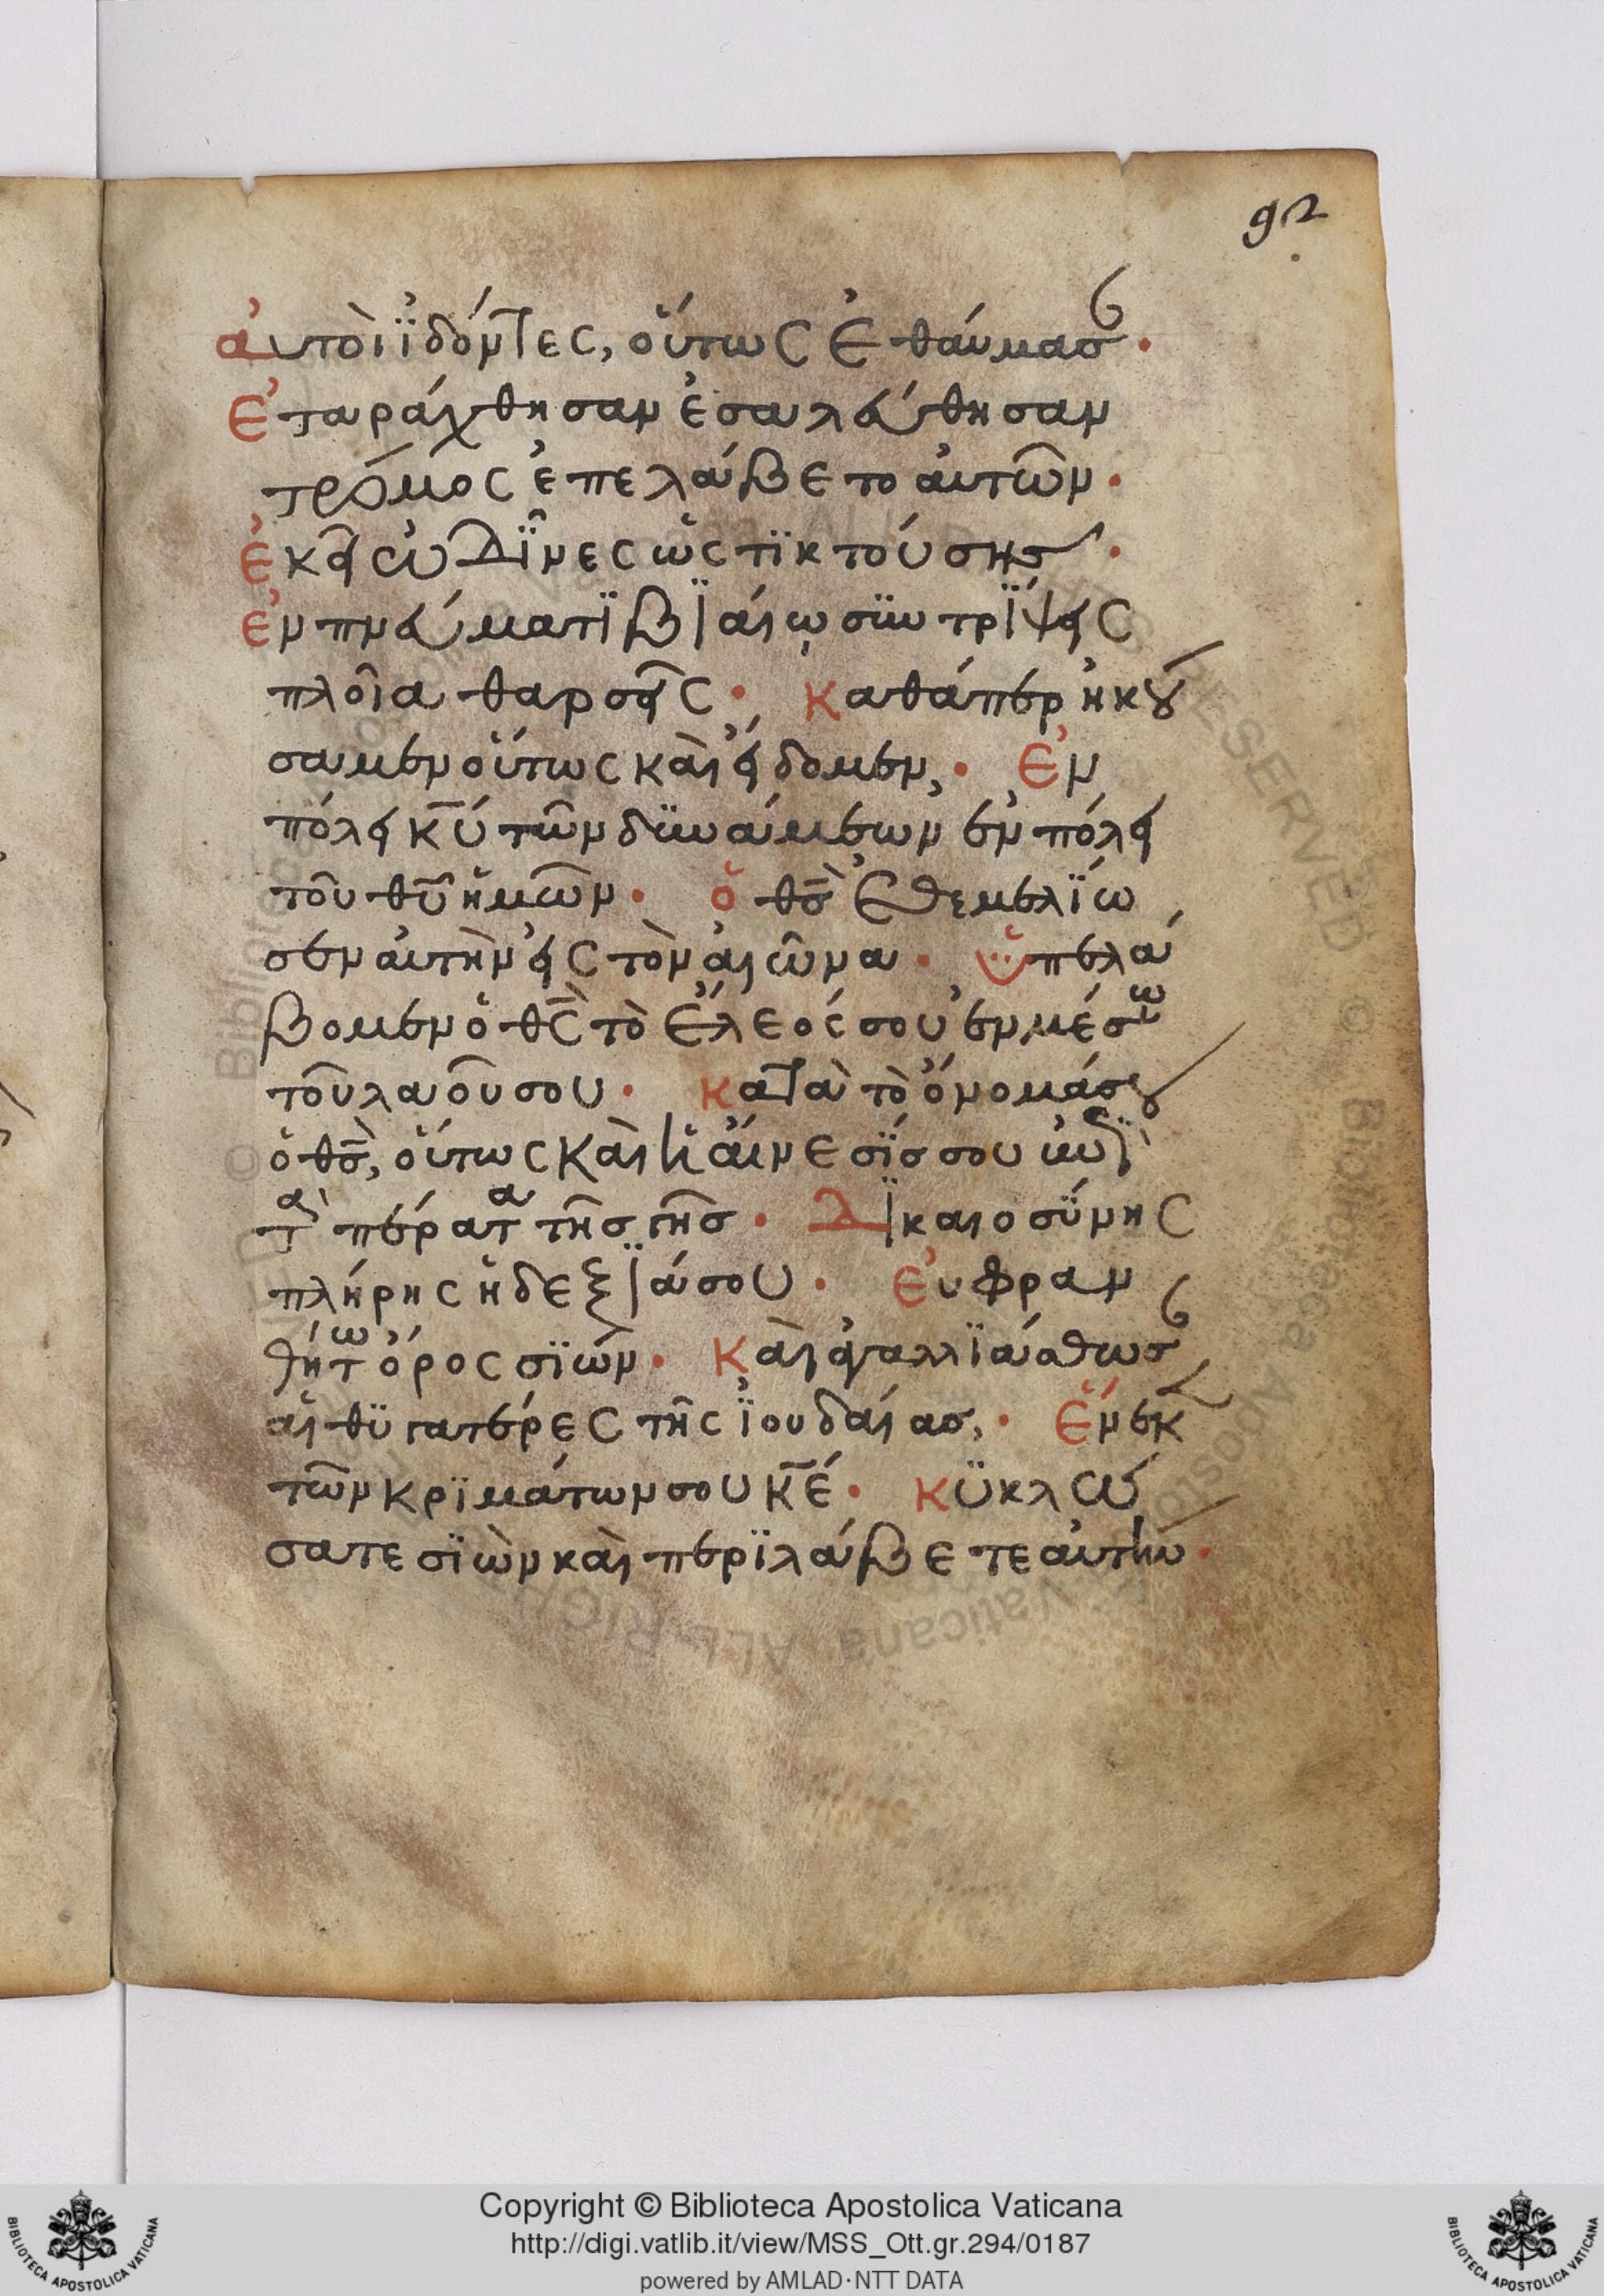 92
αὐτοὶ ἰδόντες, οὕτως ἐθαύμασ
ἐταράχθησαν ἐσαλεύθησαν
τρόμος ἐπελάβετο αὐτῶν·
ἐκεῖ ὠδῖνες ὡς τϊκτούσης·
ἐν πνεύματϊ βϊαίω συντρίψεις
πλοῖα θαρσεῖς· Καθάπερ ἠκού
σαμεν οὕτως καὶ εἴδομεν,· Ἐν
πόλει κ̅υ̅ τῶν δϋνάμεων ἐν πόλει
τοῦ θ̅υ̅ ἡμῶν· ὁ θ̅ς̅ ἐθεμελΐω
σεν αὐτὴν εἰς τὸν αἰῶνα· Ὑπελά
βομεν ὁ θ̅ς̅ τὸ ἔλεός σου ἐν μέσω
τοῦ λαοῦ σου· κατὰ τὸ ὄνομά σου
ὁ θ̅ς̅, οὕτως καὶ ἡ αἴνεσΐς σου ἐπὶ
τὰ πέρατα τῆς γῆς· Δϊκαιοσΰνης
πλήρης ἡ δεξϊά σου· Εὐφραν
θήτω ὄρος σϊών· Καὶ ἀγαλλϊάσθωσ
αἱ θϋγατέρες τῆς ϊουδαίας,· Ἕνεκ
τῶν κρϊμάτων σου κ̅ε̅· Κϋκλώ
σατε σϊὼν καὶ περϊλάβετε αὐτήν·
Copyright © Biblioteca Apostolica Vaticana
http://digi.vatlib.it/view/MSS_Ott.gr.294/0187
powered by AMLAD·NTT DATA
BIBLIOTECA APOSTOLICA VATICANA
BIBLIOTECA APOSTOLICA VATICANA